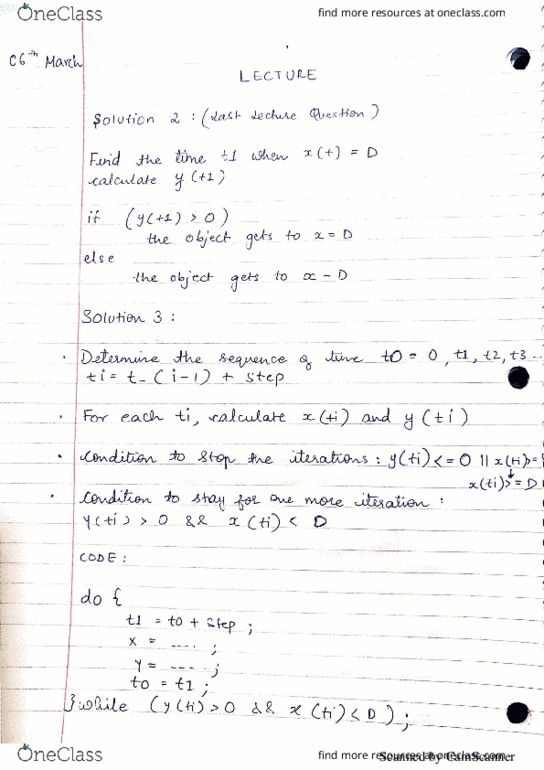 OneClass
find more resources at oneclass.com
06th March
LECTURE
Solution 2 : (Last Lecture Question)
Find the time t1 when x(t) = D
calculate y(t1)
if (y(t1) > 0)
the object gets to x = D
else
the object gets to x - D
Solution 3 :
· Determine the sequence of time t0 = 0, t1, t2, t3 ...
ti = t_(i-1) + step
· For each ti, calculate x(ti) and y(ti)
· Condition to stop the iterations : y(ti) <= 0 || x(ti) =
x(ti) >= D
· Condition to stay for one more iteration :
y(ti) > 0 && x(ti) < D
CODE :
do {
t1 = t0 + step ;
x = ---- ;
y = ---- ;
t0 = t1 ;
} while (y(ti) > 0 && x(ti) < D) ;
OneClass
find more resources at oneclass.com
Scanned by CamScanner